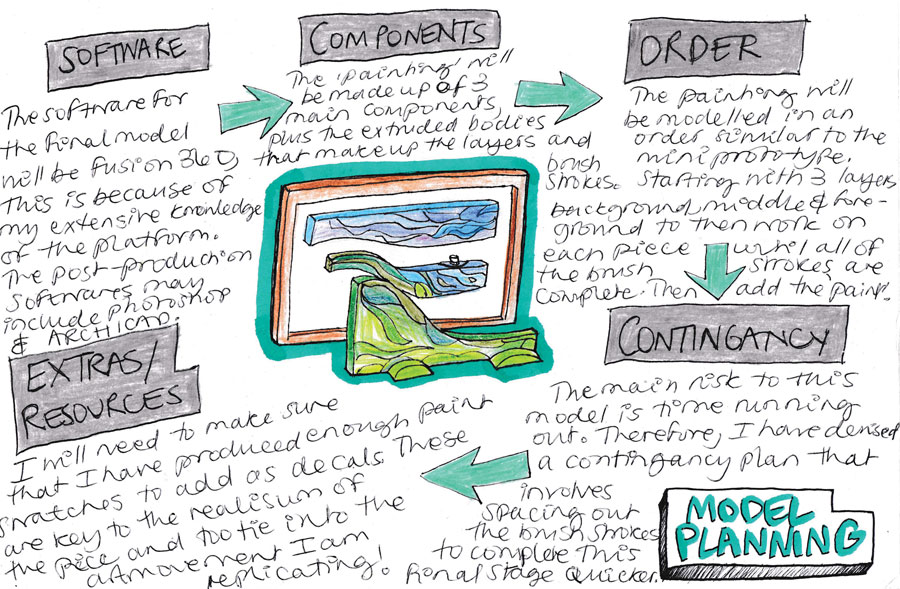 SOFTWARE
The software for
the final model
will be fusion 360,
This is because of
my extensive knowledge
of the platform.
The post-production
softwares may
include photoshop
& ARCHICAD.
COMPONENTS
The 'painting' will
be made up of 3
main components,
plus the extruded bodies
that make up the layers and
brush
strokes.
ORDER
The painting will
be modelled in an
order similar to the
mini prototype.
Starting with 3 layers
background, middle & fore-
ground to then work on
each piece until all of
the brush strokes are
complete. Then add the paint!
CONTINGANCY
The main risk to this
model is time running
out. Therefore, I have devised
a contingancy plan that
involves
spacing out
the brush strokes
to complete this
final stage quicker.
EXTRAS/
RESOURCES
I will need to make sure
that I have produced enough paint
swatches to add as decals. These
are key to the realisum of
the piece and too tie into the
artmovement I am
replicating!
MODEL
PLANNING